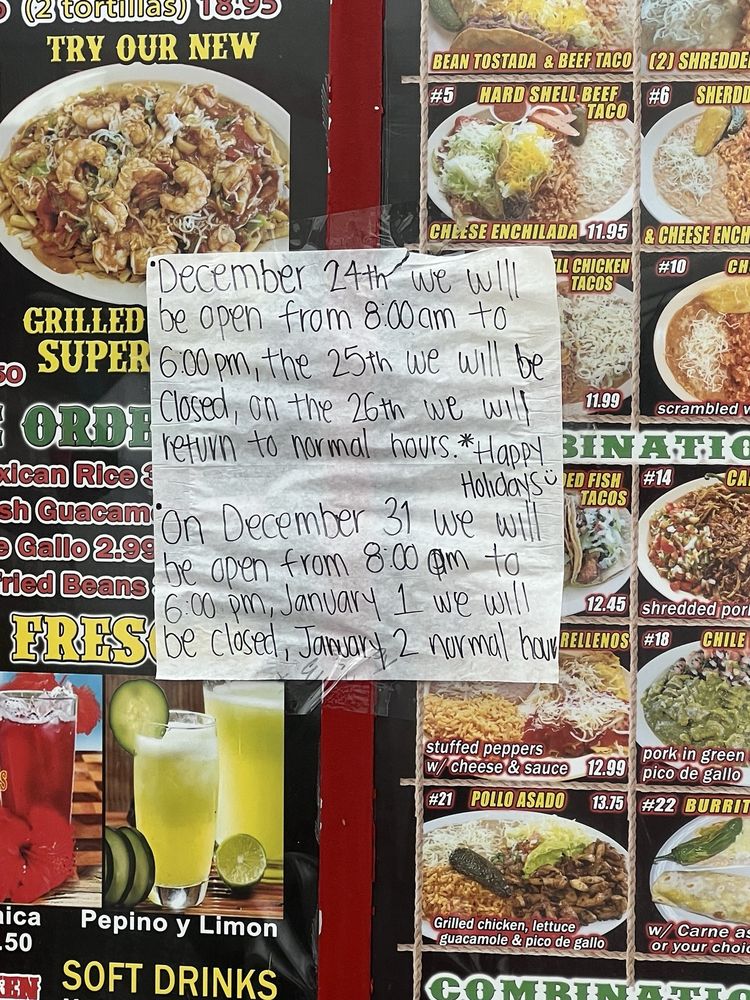 (2 tortillas) 18.95
TRY OUR NEW
GRILLED
SUPER
ORDE
xican Rice 3
sh Guacam
e Gallo 2.99
ried Beans
FRESC
Pepino y Limon
.50
SOFT DRINKS
• December 24th we will
be open from 8:00 am to
6:00 pm, the 25th we will be
Closed, on the 26th we will
return to normal hours. *Happy
Holidays
• On December 31 we will
be open from 8:00 am to
6:00 pm, January 1 we will
be closed, January 2 normal hour
BEAN TOSTADA & BEEF TACO
(2) SHREDDE
#5 HARD SHELL BEEF
TACO
CHEESE ENCHILADA 11.95
#6 SHERDD
& CHEESE ENCH
LL CHICKEN
TACOS
11.99
#10 CH
scrambled w
BINATIO
ED FISH
TACOS
12.45
#14 CA
shredded por
RELLENOS
stuffed peppers
w/ cheese & sauce 12.99
#18 CHILE
pork in green
pico de gallo
#21 POLLO ASADO 13.75
Grilled chicken, lettuce
guacamole & pico de gallo
#22 BURRIT
w/ Carne as
or your choic
COMBINAT